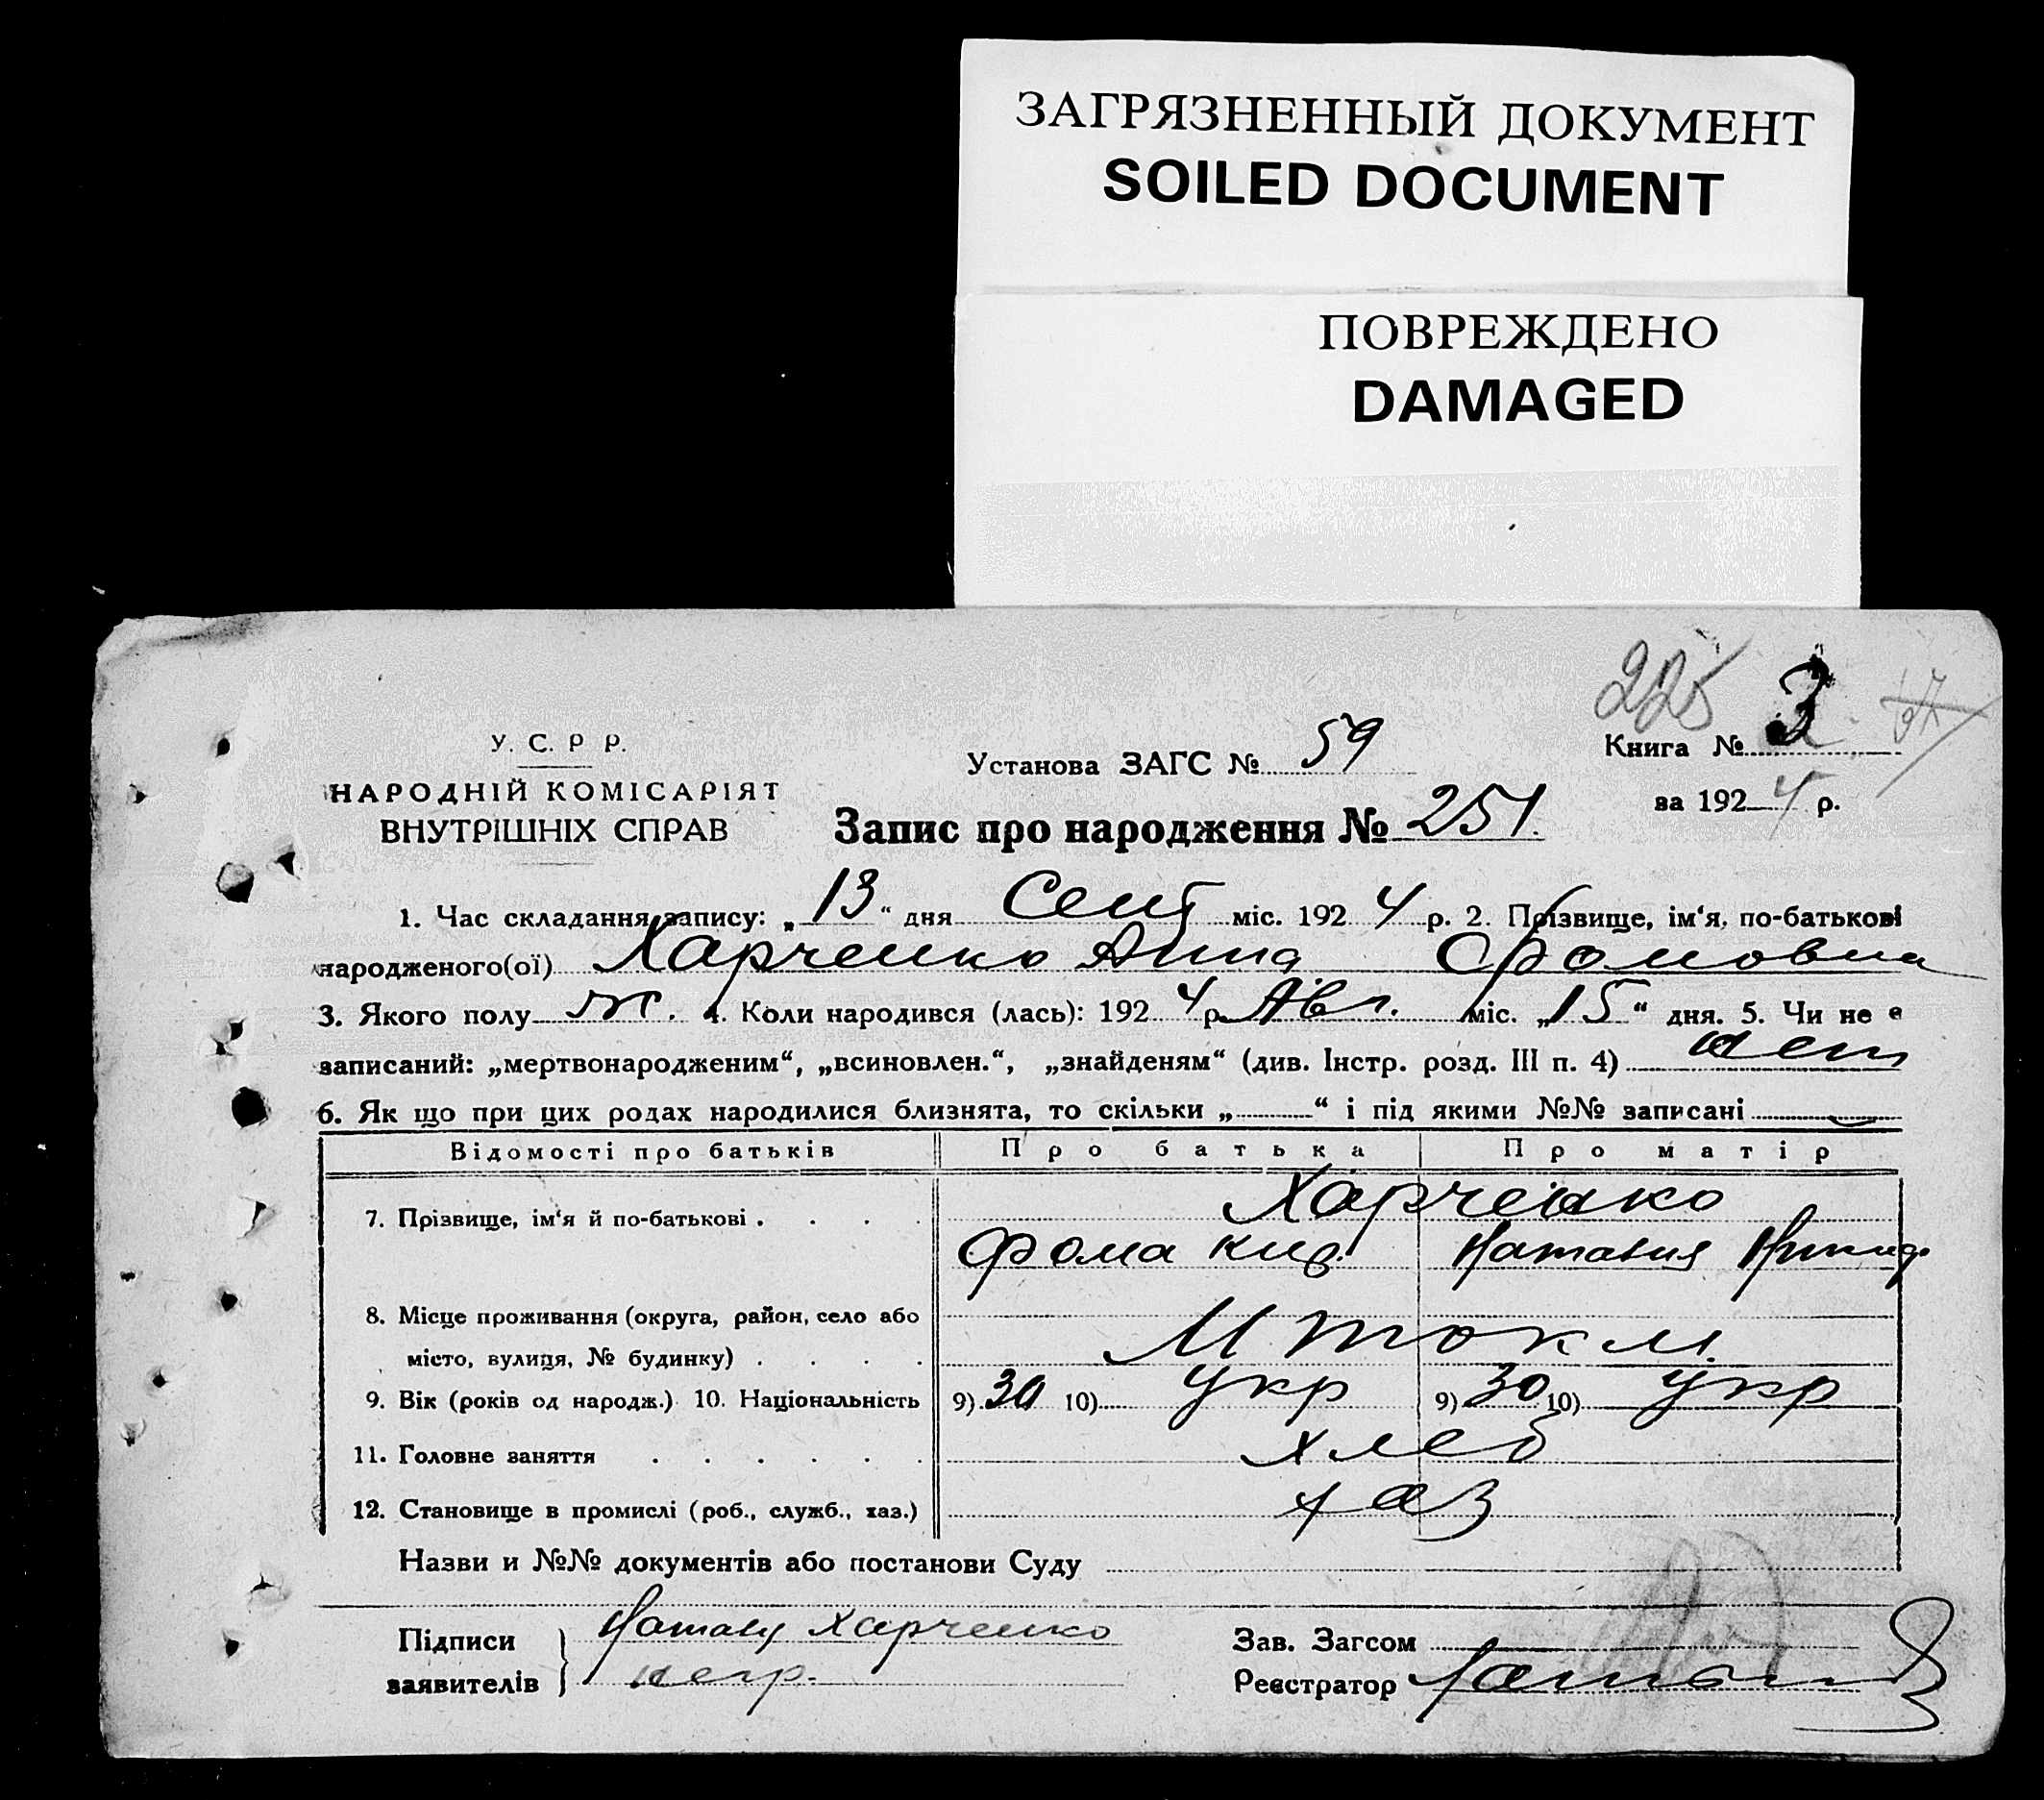 ЗАГРЯЗНЕННЫЙ ДОКУМЕНТ
SOILED DOCUMENT
ПОВРЕЖДЕНО
DAMAGED
225
У. С. Р Р.
НАРОДНІЙ КОМІСАРІЯТ
ВНУТРІШНІХ СПРАВ
Установа ЗАГС № 59
Книга № 3
за 1924 р.
Запис про народження № 251.
1. Час складання запису: „13“ дня Сент міс. 1924 р. 2. Прізвище, ім‘я, по-батькові
народженого(ої) Харченко Анна Фомовна
3. Якого полу ж. 4. Коли народився (лась): 1924 р. Авг. міс. „15“ дня. 5. Чи не є
записаний: „мертвонародженим“, „всиновлен.“, „знайденям“ (див. Інстр. розд. III п. 4) нет
6. Як що при цих родах народилися близнята, то скільки „ “ і під якими №№ записані
Відомості про батьків Про батька Про матір
7. Прізвище, ім‘я й по-батькові . . . . Харченко
Фома Кир. Наталия
8. Місце проживання (округа, район, село або
місто, вулиця, № будинку) . . . . М Токм.
9. Вік (років од народж.) 10. Національність 9) 30 10) Укр 9) 30 10) Укр
11. Головне заняття . . . . . . Хлеб
12. Становище в промислі (роб., служб., хаз.) Хаз
Назви и №№ документів або постанови Суду
Підписи Харченко
заявителів негр.
Зав. Загсом
Реєстратор